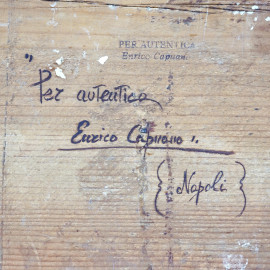 PER AUTENTICA
Enrico Capuano
"Per autentica
Enrico Capuano".
{Napoli}